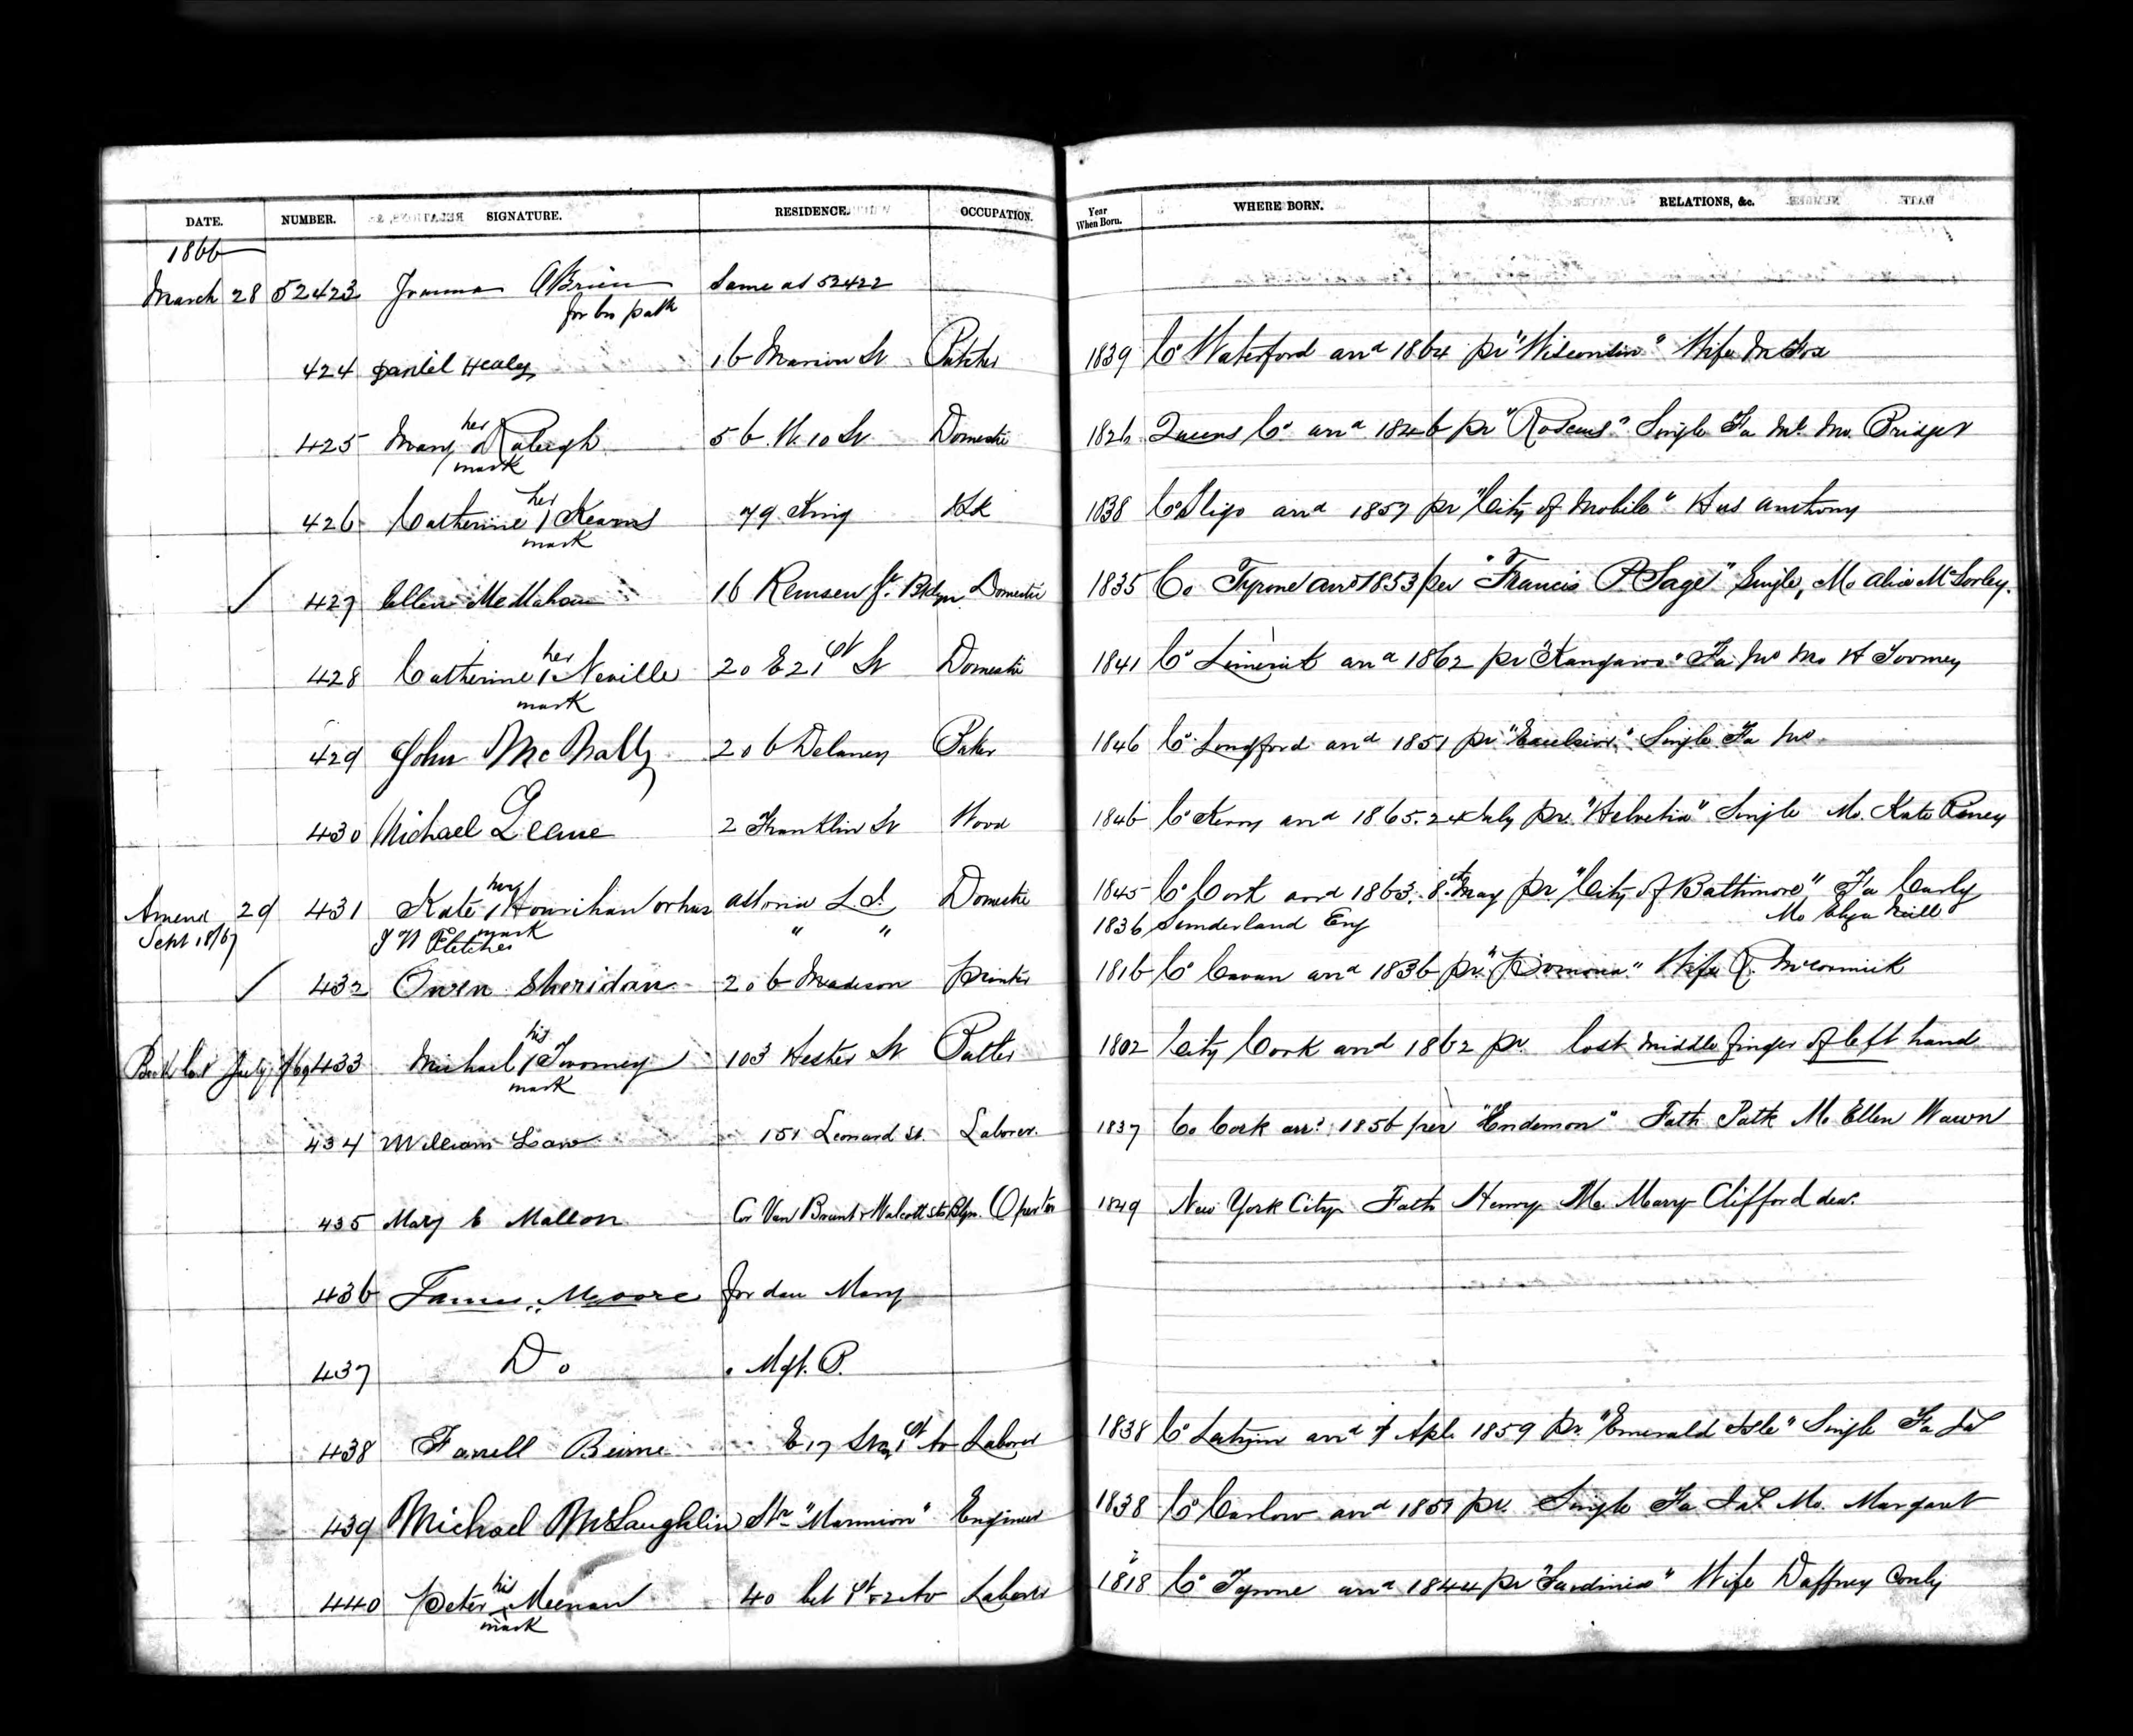 DATE. NUMBER. SIGNATURE. RESIDENCE. OCCUPATION. Year When Born. WHERE BORN. RELATIONS, &c.
1866
March 28 52423 Joanna O'Brien Same as 52422
for bro Patk
424 Daniel Healey 16 Marion St 1839 Co Waterford arrd 1864 pr "Wisconsin" Wife M Fox
her
425 Mary Raleigh 56 W 10 St Domestic 1826 Queens Co arrd 1846 pr "Roscius" Single Fa Ml Mo. Bridget
mark
her
426 Catherine / Kearns 79 King HK 1838 Co Sligo arrd 1857 pr "City of Mobile" Hus Anthony
mark
427 Ellen McMahon 16 Remsen St. Bklyn Domestic 1835 Co Tyrone arrd 1853 per "Francis P. Sage" Single, Mo Alice McSorley.
her
428 Catherine / Neville 20 E 21st St Domestic 1841 Co Limerick arrd 1862 pr "Kangaroo" Fa Jno Mo H Toomey
mark
429 John McNally 206 Delancy Baker 1846 Co Longford arrd 1851 pr "Excelsior" Single Fa Jno
430 Michael Leane 2 Franklin St Wood 1846 Co Kerry arrd 1865. 24 July pr. "Helvetia" Single Mo. Kate
her
Amend 29 431 Kate / Hourihan or hus Astoria L.I. Domestic 1845 Co Cork arrd 1863. 8th May pr "City of Baltimore" Fa Curly
mark
Mo Eliza Neill
Sept 18/67 Fletcher " " 1836 Sunderland Eng
432 Owen Sheridan 206 Madison Printer 1816 Co Cavan arrd 1836 pr. "Pomona" Wife McCormick
his
Bk lost July 433 Michael / Twomey 103 Hester St 1802 City Cork arrd 1862 pr. lost middle finger of left hand
mark
434 William 151 Leonard St. Laborer. 1837 Co Cork arrd. 1856 per "Endemon" Fath Patk Mo Ellen
435 Mary E Mallon Cor Van Brunt & Walcott sts Bklyn. 1849 New York City Fath Henry Mo. Mary Clifford dea.
436 James Moore for dau Mary
437 Do " Mgt. P.
438 Farrell Beirne E 17 St 1st Av Laborer 1838 Co Leitrim arrd Apl. 1859 pr. "Emerald Isle" Single Fa
439 Michael McLaughlin Str "Marmion" Engineer 1838 Co Carlow arrd 1851 pr. Single Fa Mo. Margaret
his
440 Peter Meenan 40 bet 1st & 2 Av Laborer 1818 Co Tyrone arrd 1844 pr "Sardinia" Wife Daffney Conly
mark